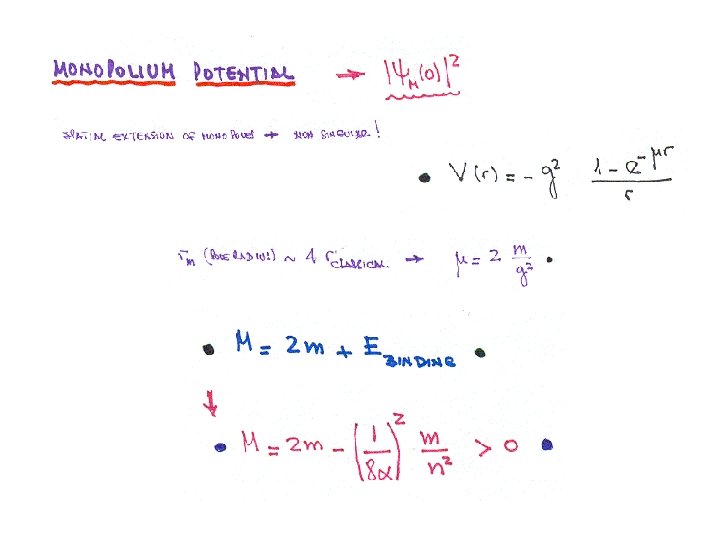 MONOPOLIUM POTENTIAL → |Ψ_M(0)|²
SPATIAL EXTENSION OF MONOPOLES → NON SINGULAR!
• V(r) = - g² (1 - e^{-μr}) / r
r_m (POLE RADIUS) ~ 4 r_CLASSICAL → μ = 2 m/g² •
• M = 2m + E_BINDING •
↓
• M = 2m - (1/8α)² m/n² > 0 •